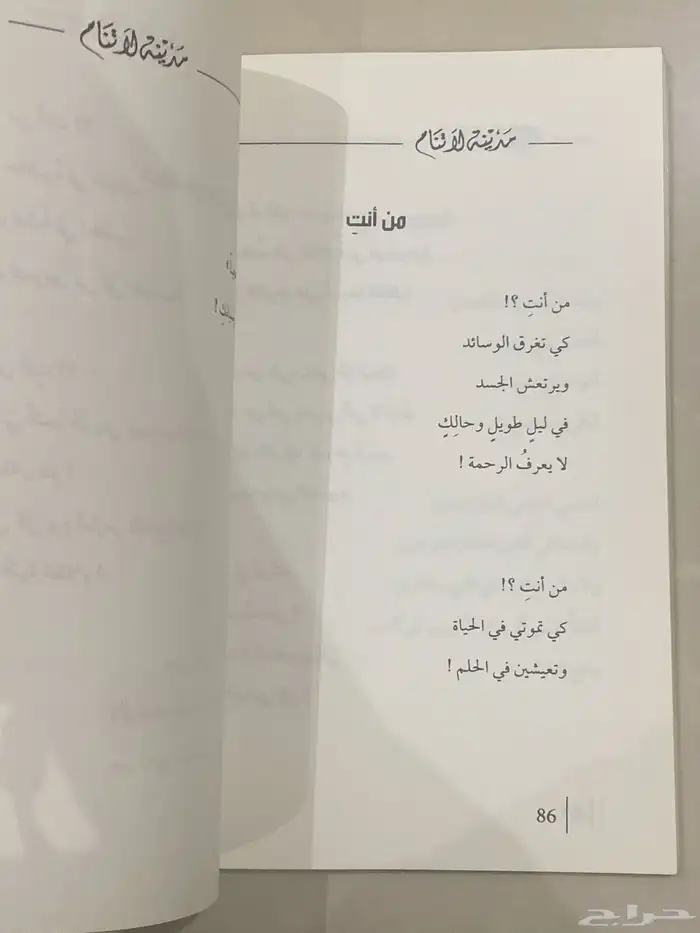 مدينة لا تنام
مدينة لا تنام
من أنتِ
من أنتِ ؟!
كي تغرق الوسائد
ويرتعش الجسد
في ليلٍ طويلٍ وحالِكٍ
لا يعرفُ الرحمة !
من أنتِ ؟!
كي تموتي في الحياة
وتعيشين في الحلم !
86
حراج